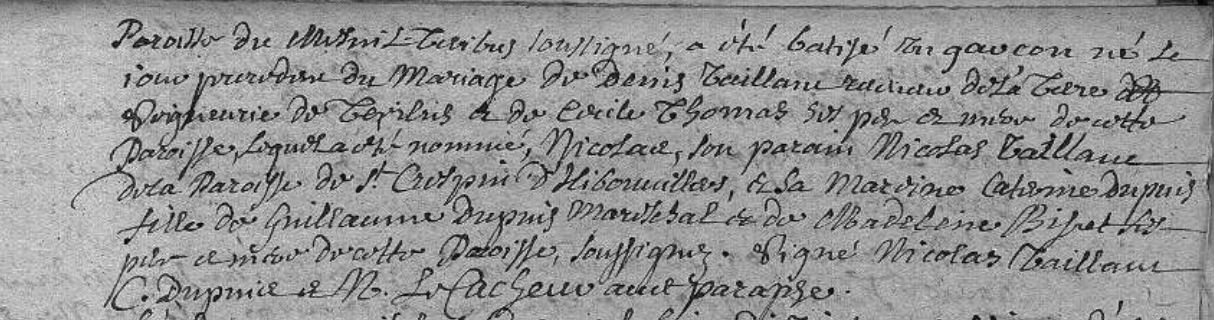 Paroisse du Mesnil-Teribus soussigné, a été batisé un garcon né le
jour precedent du Mariage de Denis Taillant receveur de la Terre
Seigneurie de Teribus & de Cecile Thomas ses pere et mere de cette
Paroisse, lequel a été nommé, Nicolas, son parain Nicolas Taillant
de la Paroisse de St. Crespin d'Hibouvillers, & sa Mareine Caterine Dupuis
fille de Guillaume Dupuis Mareschal & de Madeleine ses
pere et mere de cette Paroisse, soussignez. Signé Nicolas Taillant
C. Dupuis et N. Le Cacheux avec paraphe.